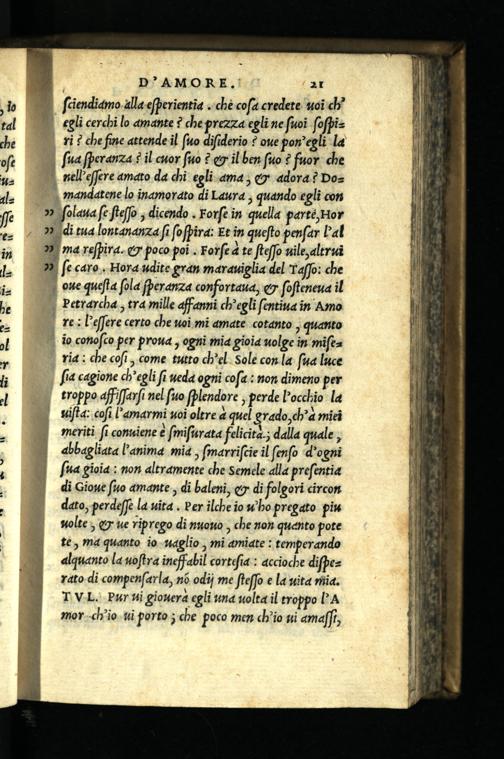 D'AMORE. 21
sciendiamo alla esperientia . che cosa credete uoi ch'
egli cerchi lo amante ? che prezza egli ne suoi sospi=
ri ? che fine attende il suo disiderio ? oue pon'egli la
sua speranza ? il cuor suo ? & il ben suo ? fuor che
nell'essere amato da chi egli ama, & adora ? Do=
mandatene lo inamorato di Laura , quando egli con
solaua se stesso , dicendo . Forse in quella parte, Hor
di tua lontananza si sospira: Et in questo pensar l'al
ma respira. & poco poi . Forse à te stesso uile, altrui
se caro . Hora udite gran marauiglia del Tasso: che
oue questa sola speranza confortaua, & sosteneua il
Petrarcha , tra mille affanni ch'egli sentiua in Amo
re : l'essere certo che uoi mi amate cotanto , quanto
io conosco per proua , ogni mia gioia uolge in mise=
ria : che cosi , come tutto ch'el Sole con la sua luce
sia cagione ch'egli si ueda ogni cosa : non dimeno per
troppo affissarsi nel suo splendore , perde l'occhio la
uista: cosi l'amarmi uoi oltre à quel grado, ch'à miei
meriti si conuiene è smisurata felicità ; dalla quale ,
abbagliata l'anima mia , smarriscie il senso d'ogni
sua gioia : non altramente che Semele alla presentia
di Gioue suo amante , di baleni, & di folgori circon
dato, perdesse la uita . Per ilche io u'ho pregato piu
uolte , & ue riprego di nuouo , che non quanto pote
te , ma quanto io uaglio , mi amiate : temperando
alquanto la uostra ineffabil cortesia : accioche dispe=
rato di compensarla, nō odij me stesso e la uita mia.
TVL. Pur ui giouerà egli una uolta il troppo l'A
mor ch'io ui porto ; che poco men ch'io ui amassi,